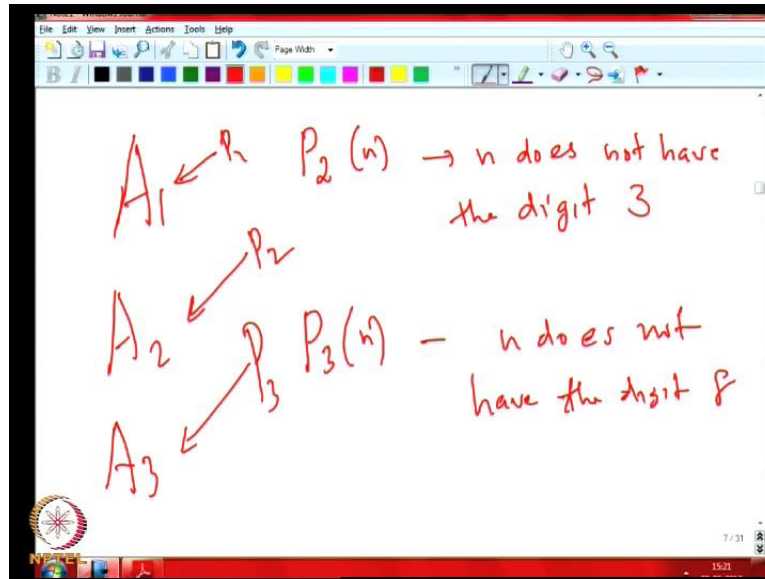 File Edit View Insert Actions Tools Help
Page Width
B I
A1 P1 P2 (n) → n does not have
the digit 3
P2
A2 P3 P3 (n) – n does not
have the digit 8
A3
7 / 31
NPTEL
15:21